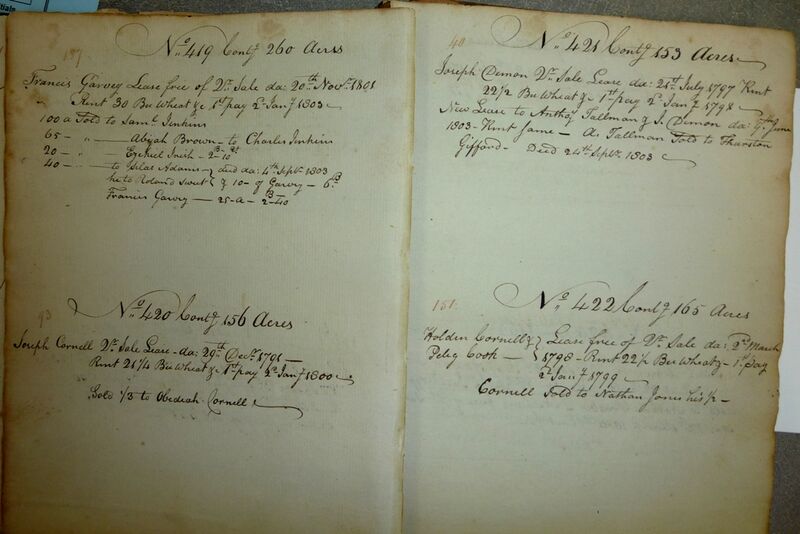 197
No 419 Contg 260 Acres
Francis Garvey Lease free of Qr Sale da: 20th Novr 1801
Rent 30 Bu Wheat &c 1st pay 2d Jany 1803
100 a Sold to Saml Jenkins
65 - " - Abijah Brown - to Charles Jenkins
20 - " Ezekiel
40 - - to Silas Adams } deed da: 4th Septr 1803
he to Roland Sweet } & 10 - of Garvey - 6 B
Francis Garvey - 25 a - 2 B
93
No 420 Contg 156 Acres
Joseph Cornell Qr Sale Lease - da: 29th Decr 1791 -
Rent 21 1/4 Bu Wheat &c 1st pay 2d Jany 1800
Sold 1/3 to Obediah Cornell
40
No 421 Contg 153 Acres
Joseph Demon Qr Sale Lease da: 21st July 1797 Rent
22 1/2 Bu Wheat &c 1st pay 2d Jany 1798
New Lease to Anthoy Tallman & J. Demon da: 9th June
1803 - Rent Same - A. Tallman Sold to Thurston
Gifford - Deed 24th Septr 1803
151
No 422 Contg 165 Acres
Holden Cornell & } Lease free of Qr Sale da: 2nd March
Peleg Cook - } 1798 - Rent 22 1/2 Bu Wheat &c - 1st pay
2d Jany 1799
Cornell Sold to Nathan Jones his 1/2 -